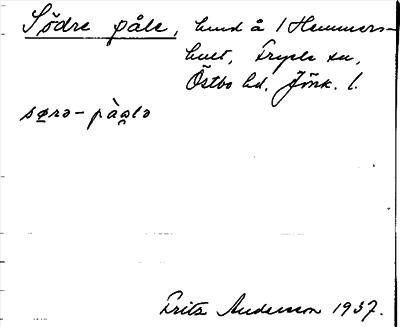 Södre påle, hmd å 1 Hemmers-
hult, Tryde sn,
Östbo hd, Jönk. l.
sørə-pàɑlə
Fritz Andersson 1937.